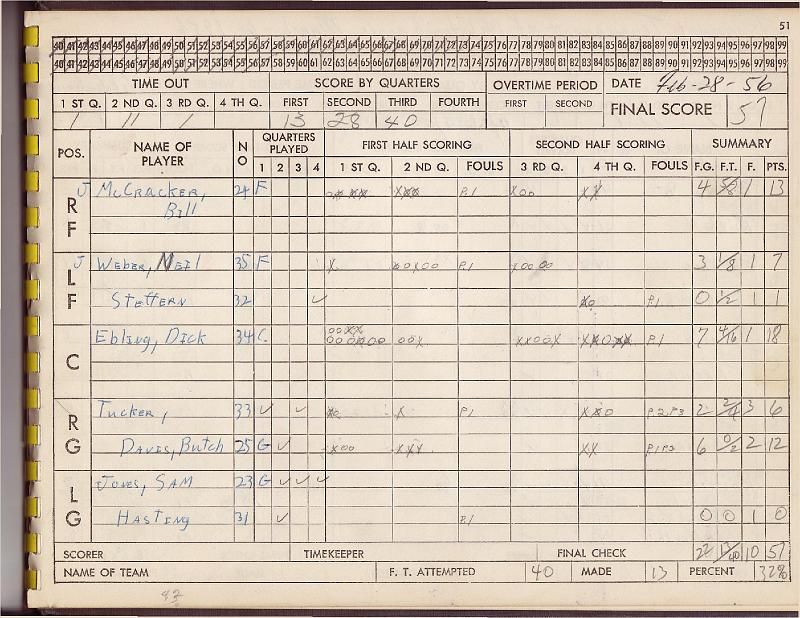 51
40 41 42 43 44 45 46 47 48 49 50 51 52 53 54 55 56 57 58 59 60 61 62 63 64 65 66 67 68 69 70 71 72 73 74 75 76 77 78 79 80 81 82 83 84 85 86 87 88 89 90 91 92 93 94 95 96 97 98 99
40 41 42 43 44 45 46 47 48 49 50 51 52 53 54 55 56 57 58 59 60 61 62 63 64 65 66 67 68 69 70 71 72 73 74 75 76 77 78 79 80 81 82 83 84 85 86 87 88 89 90 91 92 93 94 95 96 97 98 99
TIME OUT SCORE BY QUARTERS OVERTIME PERIOD DATE Feb-28-56
1 ST Q. 2 ND Q. 3 RD Q. 4 TH Q. FIRST SECOND THIRD FOURTH FIRST SECOND FINAL SCORE 57
1 11 1 13 28 40
POS. NAME OF PLAYER NO QUARTERS PLAYED FIRST HALF SCORING SECOND HALF SCORING SUMMARY
1 2 3 4 1 ST Q. 2 ND Q. FOULS 3 RD Q. 4 TH Q. FOULS F.G. F.T. F. PTS.
RF J McCracker, Bill 24 F P.1 X00 XX 4 5/8 1 13
LF J Weber, Neil 35 F X P.1 X00 00 3 1/8 1 7
Steffern 32 ✓ P.1 0 1/2 1 1
C Ebling, Dick 34 C. 00X P.1 7 4/16 1 18
RG Tucker, 33 ✓ ✓ X P.1 P.2 P.3 2 2/4 3 6
Davis, Butch 25 G ✓ X00 XXX XX P.1 P.2 6 0/2 2 12
LG Jones, Sam 23 G ✓ ✓ ✓
Hasting 31 ✓ P.1 0 0 1 0
SCORER TIMEKEEPER FINAL CHECK 22 13/40 10 57
NAME OF TEAM F. T. ATTEMPTED 40 MADE 13 PERCENT 32%